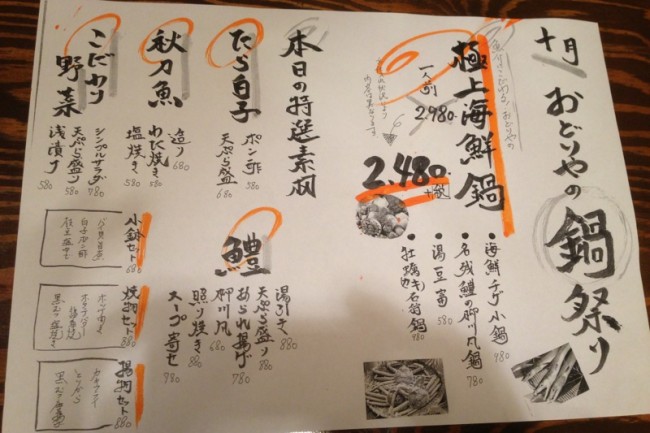 十月 おどりやの鍋祭り
極上海鮮鍋
一人前
2,980
2,480
+税
海鮮チゲ小鍋 980
名残鱧の柳川風鍋 780
湯豆富 580
牡蠣(カキ)石狩鍋 980
本日の特選素材
たら白子
ポン酢 580
天ぷら盛り 680
秋刀魚
造り 680
わた焼き 580
塩焼き 580
こだわり野菜
シンプルサラダ 780
天ぷら盛り 580
浅漬け 580
鱧
湯引き 880
天ぷら盛り 880
あられ揚げ 780
柳川風 880
照り焼き 880
スープ寄せ 980
小鉢セット 680
白子ポン酢
焼物セット 980
揚物セット 880